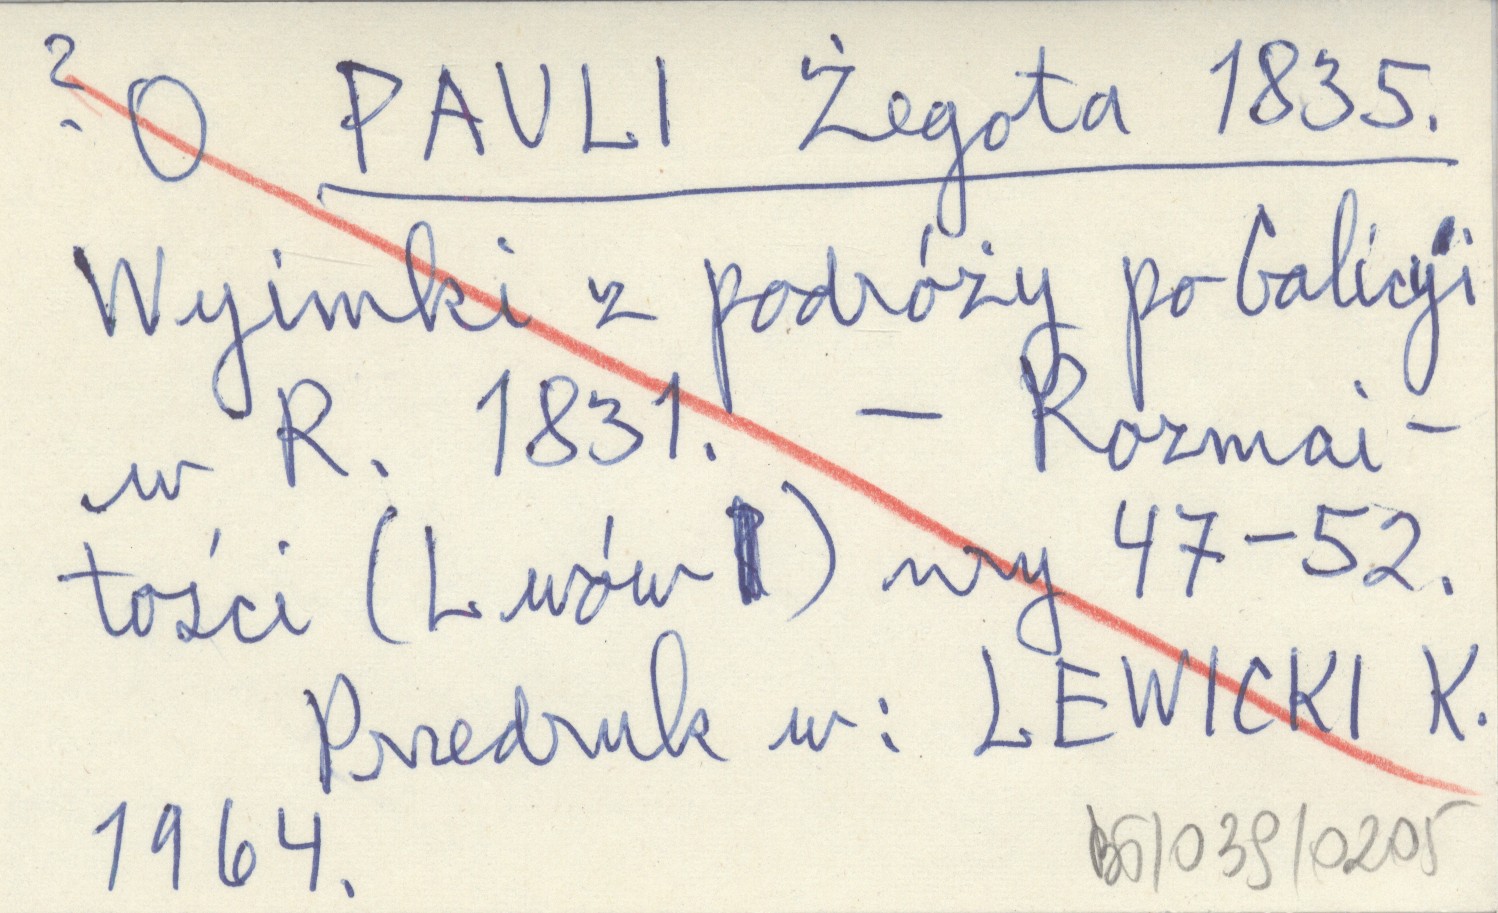 ? O PAULI Żegota 1835.
Wyimki z podróży po Galicyi
w R. 1831. — Rozmai-
tości (Lwów) nry 47-52.
Przedruk w: LEWICKI K.
1964.
b5/039/0205